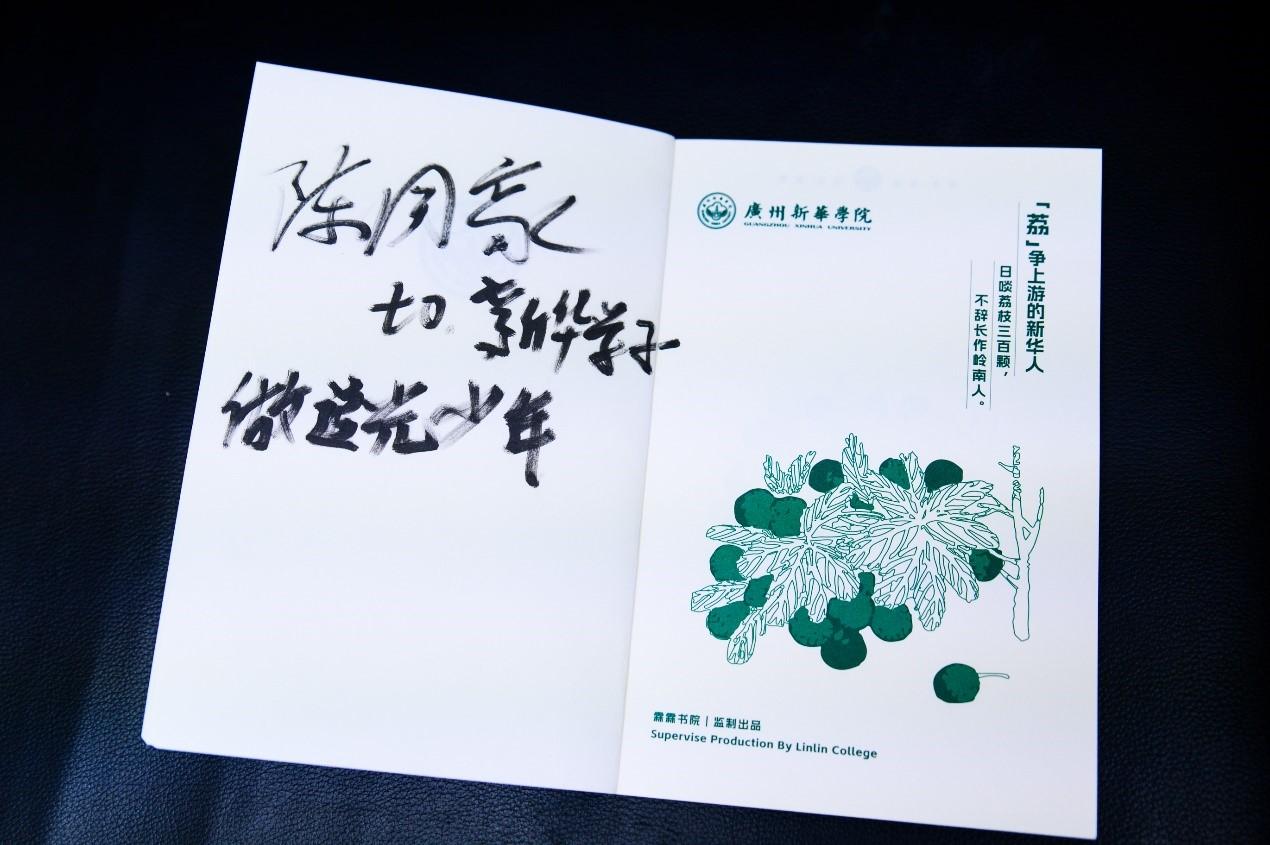 新华学子
做追光少年
廣州新華學院
GUANGZHOU XINHUA UNIVERSITY
「荔」争上游的新华人
日啖荔枝三百颗，
不辞长作岭南人。
霖霖书院｜监制出品
Supervise Production By Linlin College